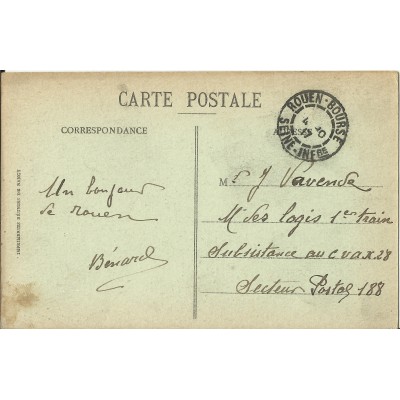 CARTE POSTALE
CORRESPONDANCE
ROUEN-BOURSE
SEINE-INFRE
4 10
Un bonjour
de rouen
Bénard
Mr J Vavenda
M des logis 1er train
Subsistance au C V A X 28
Secteur Postal 188